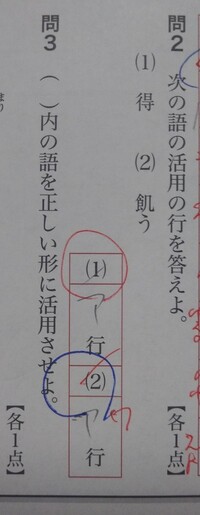 問2 次の語の活用の行を答えよ。
⑴ 得 ⑵ 飢う
⑴ ア 行
⑵ ア 行
ワ
【各1点】
問3 ( )内の語を正しい形に活用させよ。
【各1点】